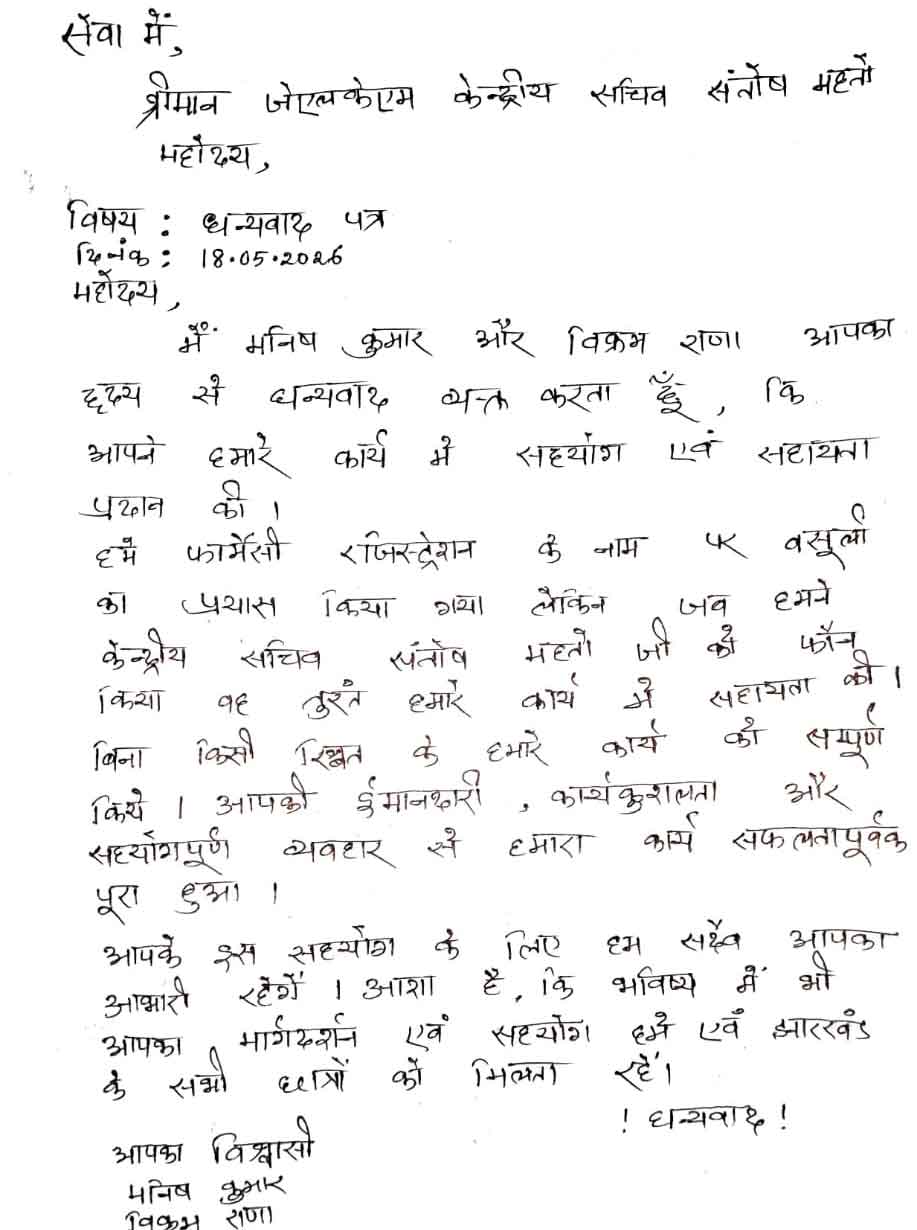 सेवा में,
श्रीमान जेएलकेएम केन्द्रीय सचिव संतोष महतो
महोदय,
विषय : धन्यवाद पत्र
दिनंक : 18.05.2026
महोदय,
मैं मनिष कुमार और विक्रम राणा आपका
हृदय से धन्यवाद व्यक्त करता हूँ, कि
आपने हमारे कार्य मे सहयोग एवं सहायता
प्रदान की ।
हमे फार्मेसी रजिस्ट्रेशन के नाम पर वसूली
का प्रयास किया गया लेकिन जब हमने
केन्द्रीय सचिव संतोष महतो जी को फोन
किया वह तुरंत हमारे कार्य मे सहायता की ।
बिना किसी रिश्वत के हमारे कार्य को सम्पूर्ण
किये । आपकी ईमानदारी , कार्यकुशलता और
सहयोगपूर्ण व्यवहार से हमारा कार्य सफलतापूर्वक
पूरा हुआ ।
आपके इस सहयोग के लिए हम सदैव आपका
आभारी रहेगें । आशा है, कि भविष्य में भी
आपका मार्गदर्शन एवं सहयोग हमे एवं झारखंड
के सभी छात्रों को मिलता रहें।
! धन्यवाद !
आपका विश्वासी
मनिष कुमार
विक्रम राणा